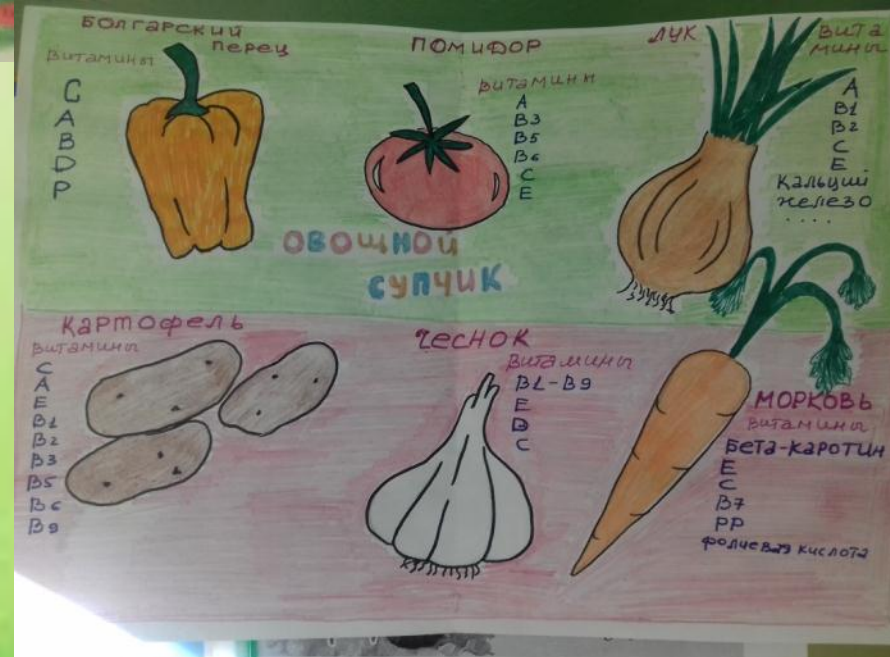 БОЛГАРСКИЙ
ПЕРЕЦ
ВИТАМИНЫ
C
A
B
D
P
ПОМИДОР
ВИТАМИНЫ
A
B3
B5
B6
C
E
ЛУК
ВИТА
МИНЫ
A
B1
B2
C
E
КАЛЬЦИЙ
ЖЕЛЕЗО
....
ОВОЩНОЙ
СУПЧИК
КАРТОФЕЛЬ
ВИТАМИНЫ
C
A
E
B1
B2
B3
B5
B6
B9
ЧЕСНОК
ВИТАМИНЫ
B1-B9
E
D
C
МОРКОВЬ
ВИТАМИНЫ
БЕТА-КАРОТИН
E
C
B7
PP
ФОЛИЕВАЯ КИСЛОТА